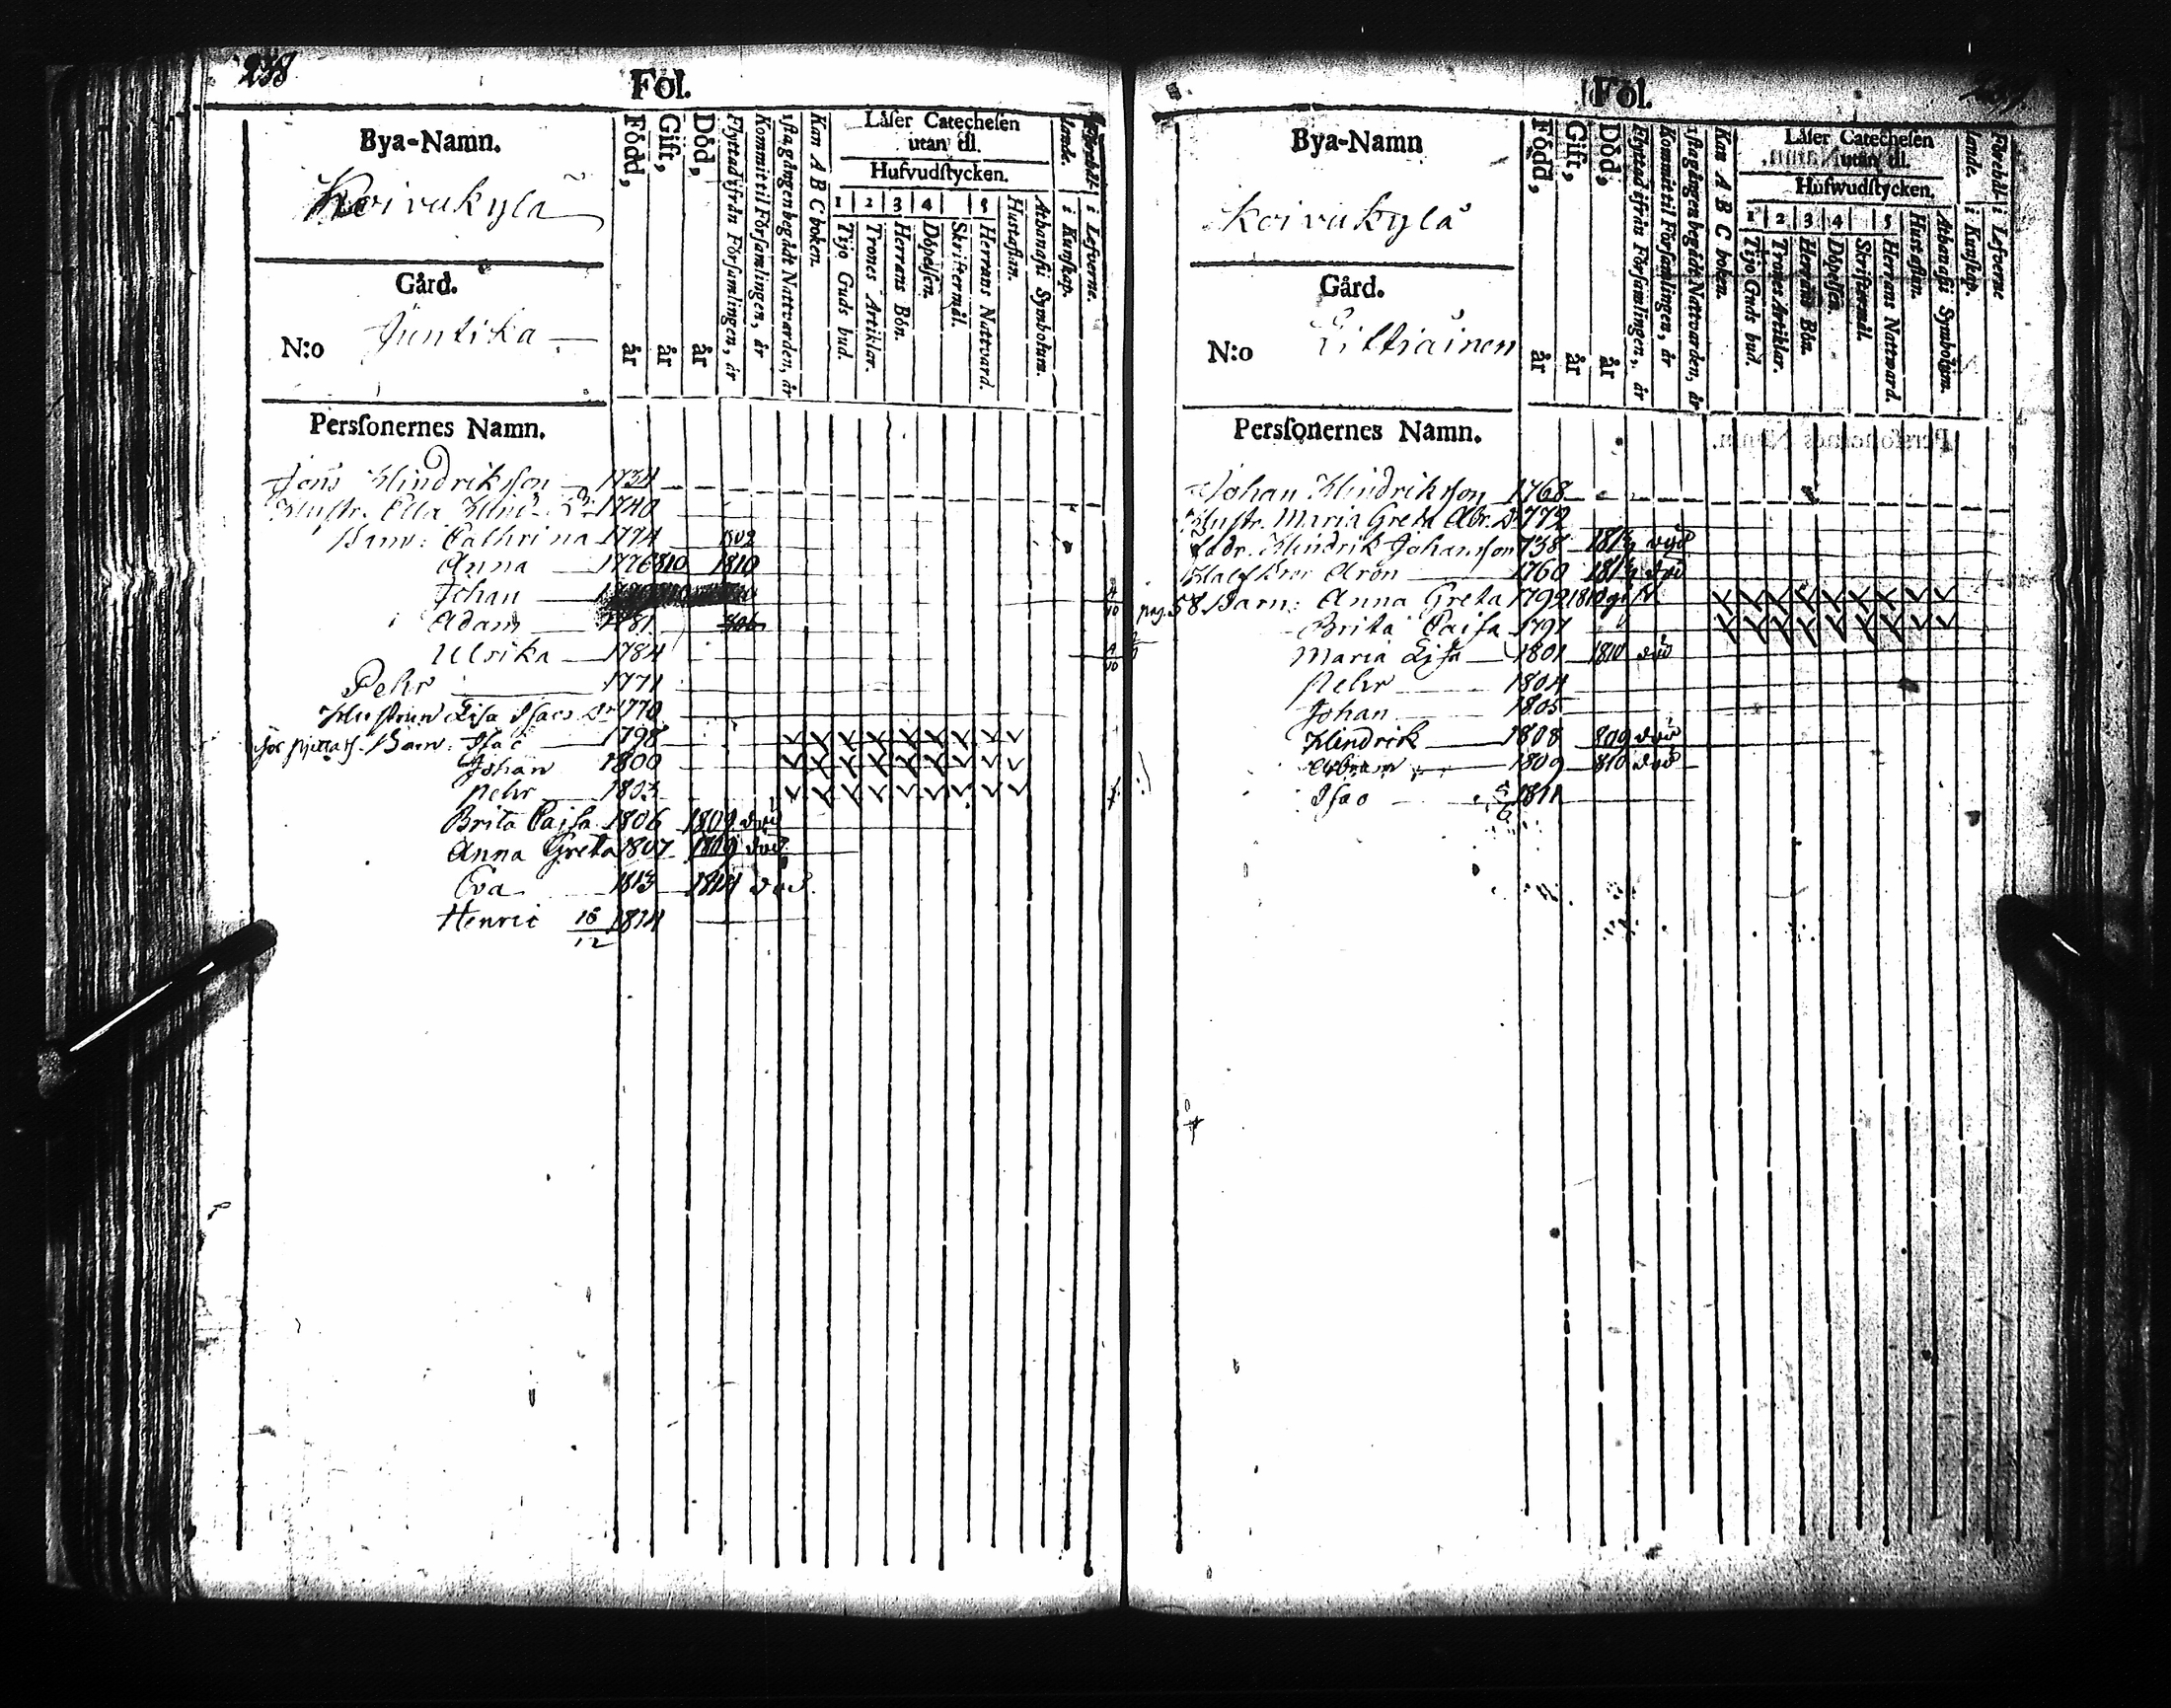 238
Fol.
Bya-Namn.
Koivukylä
Gård.
N:o Juntika
Född, år
Gift, år
Död, år
Flyttad ifrån Församlingen, år
Kommit til Församlingen, år
1sta gången begådt Nattvarden, år
Kan A B C boken.
Låser Catechesen
utan til.
Hufvudstycken.
1 2 3 4 5
Tijo Guds bud.
Trones Artiklar.
Herrans Bön.
Döpelsen.
Skriftermål.
Herrans Nattvard.
Hustaflan.
Athanasii Symbolum.
Förehål-
lande.
i Kunskap.
i Lefverne.
Perssonernes Namn.
Jöns Hindriksson 1734
Hustr. Ella Hind. Dr 1740
Barn: Cathrina 1774 802
Anna 1776 810 1810
Johan
Adam 1781 806
Ulrika 1784
Pehr 1771
Hustrun Lisa Isacs Dr 1770
Barn: Isac 1798
Johan 1800
Pehr 1803
Brita Caisa 1806 1809 död
Anna Greta 1807 1809 död
Eva 1813 1814 död
Henric 16/12 1814
Fol.
Bya-Namn
Koivukylä
Gård.
N:o Liltiäinen
Född, år
Gift, år
Död, år
Flyttad ifrån Församlingen, år
Kommit til Församlingen, år
1sta gången begådt Nattvarden, år
Kan A B C boken.
Låser Catechesen
utan til.
Hufwudstycken.
1 2 3 4 5
Tijo Guds bud.
Trones Artiklar.
Herrans Bön.
Döpelsen.
Skriftermål.
Herrans Nattvard.
Hustaflan.
Athanasii Symbolum.
Förehål-
lande.
i Kunskap.
i Lefverne
Perssonernes Namn.
Johan Hindriksson 1768
Hustr. Maria Greta Abr. Dr 772
Fadr. Hindrik Johansson 738 död
Half Bror Aron 1760 död
pag. 58 Barn: Anna Greta 1792 1810 gift
Brita Caisa 1797
Maria Lisa 1801 1810 död
Pehr 1804
Johan 1805
Hindrik 1808 809 död
Abram 1809 810 död
Isac 5/6 1811